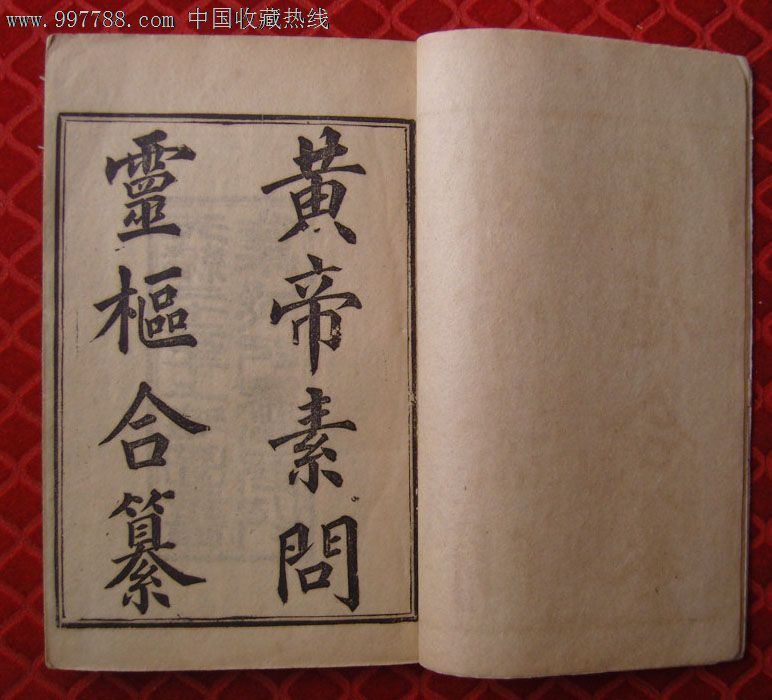 www.997788.com 中国收藏热线
黄帝素問
靈樞合纂